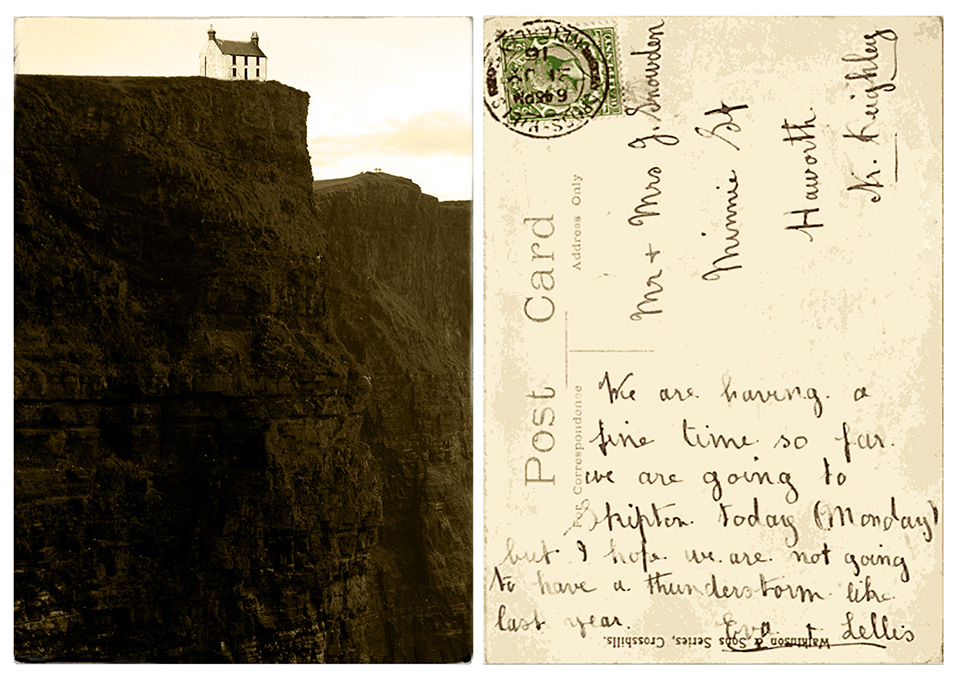 Post Card
For Correspondence
Address Only
Mr + Mrs J. Snowden
Minnie St
Haworth.
Nr. Keighley
We are having a
fine time so far.
we are going to
Skipton today (Monday)
but I hope we are not going
to have a thunderstorm like
last year.
Eva + Lellis
Watkinson & Sons Series, Crosshills.